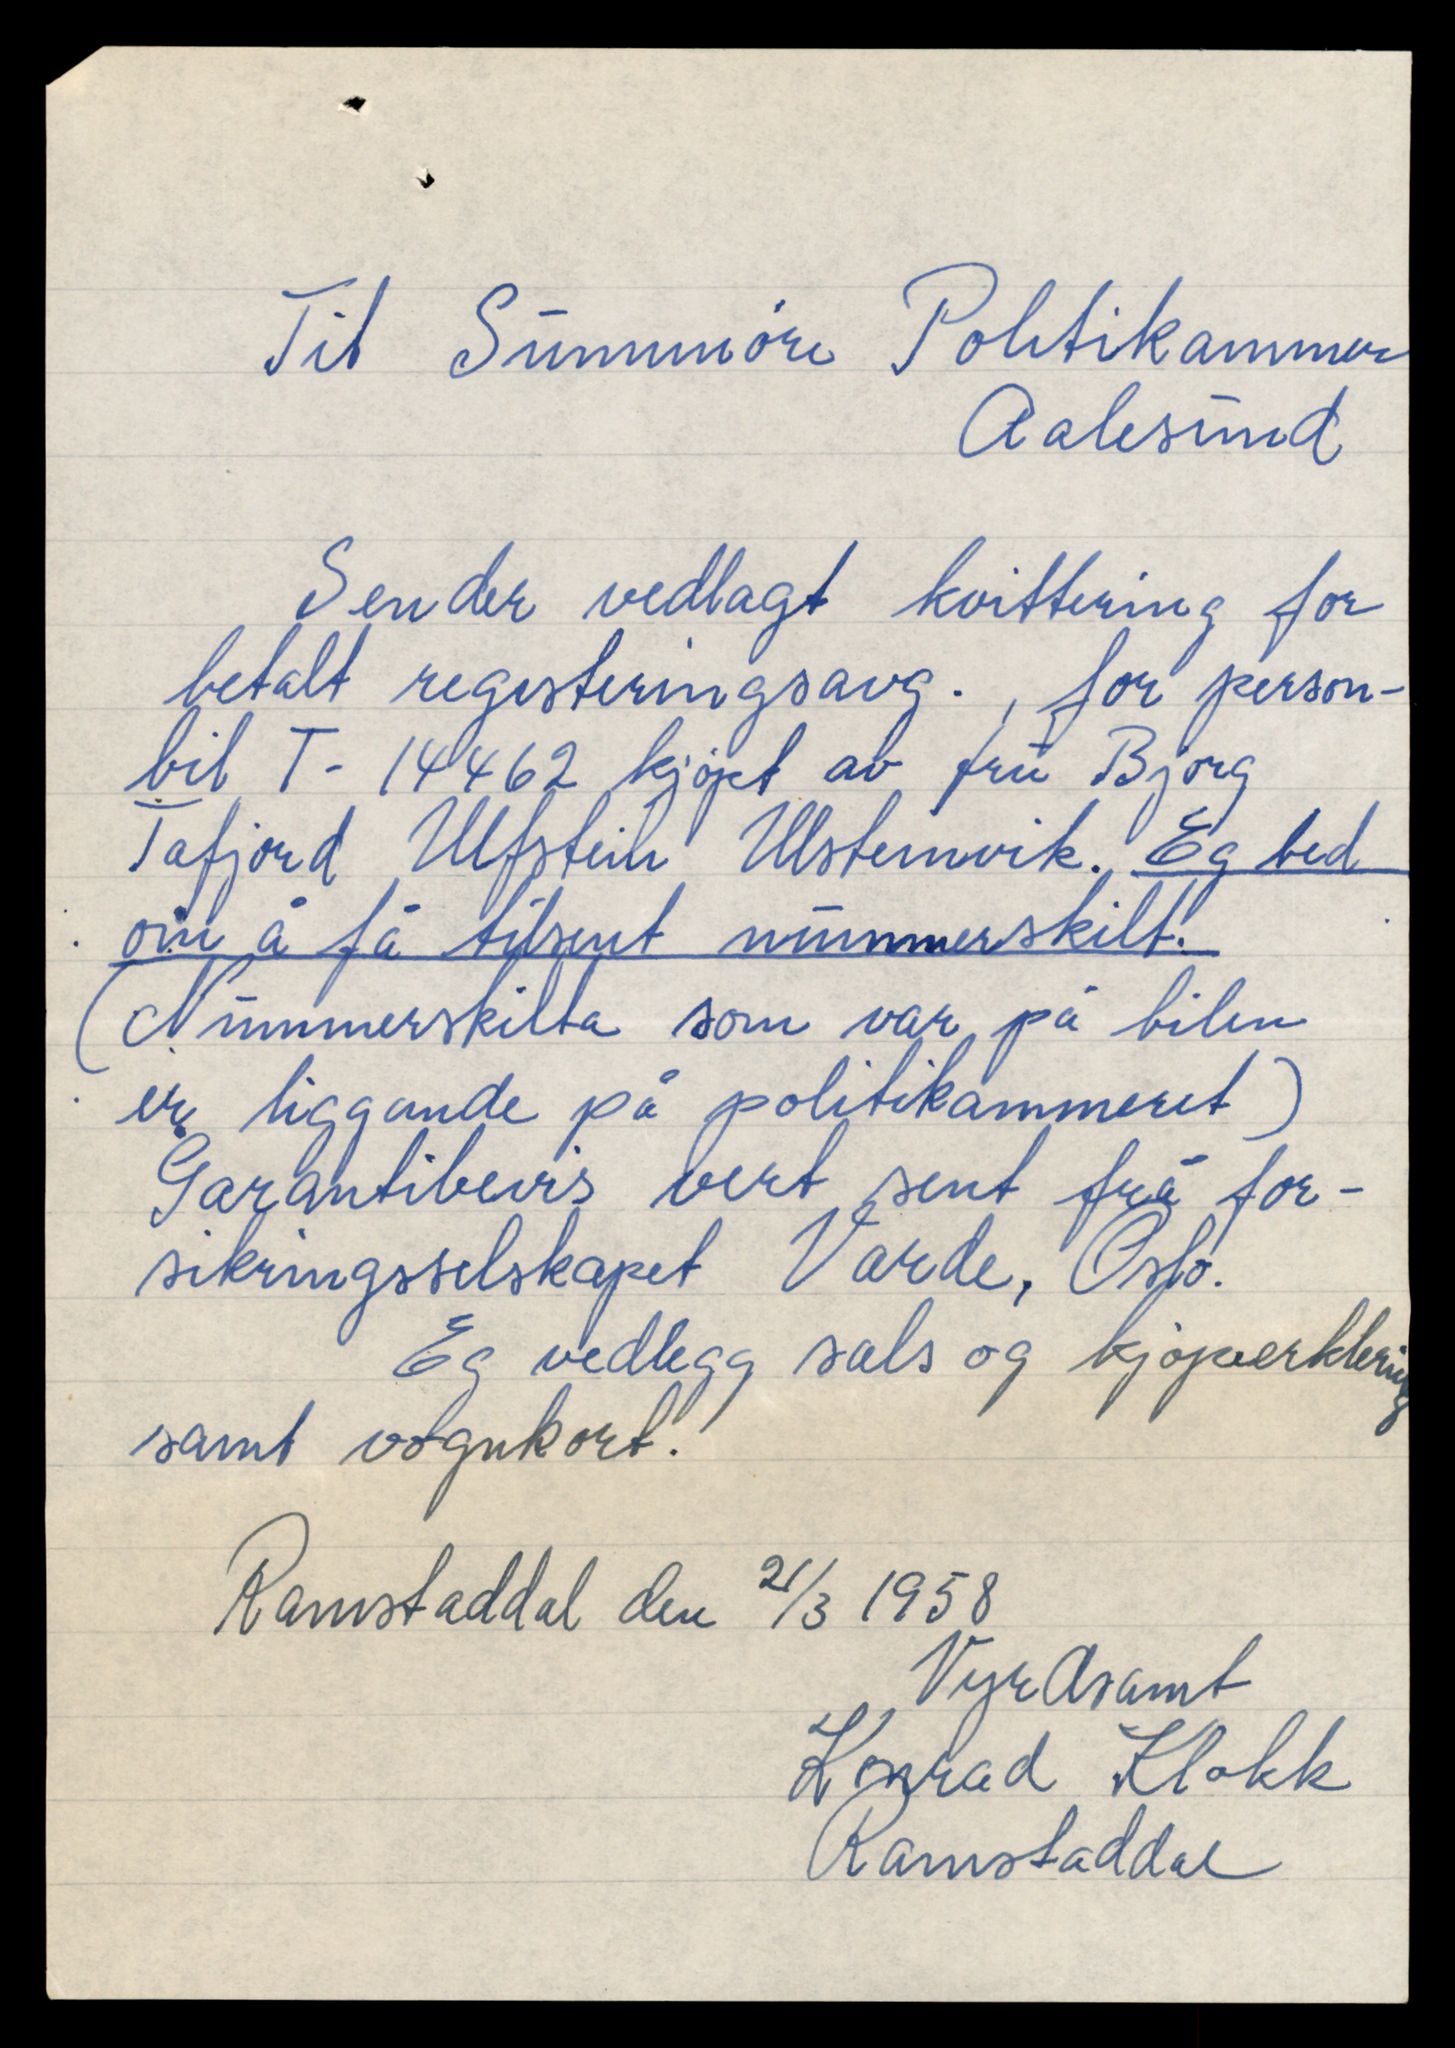 Til Sunnmöre Politikammer
Aalesund
Sender vedlagt kvittering for
betalt registeringsavg., for person-
bil T- 14462 kjöpt av fru Bjorg
Tafjord Ulfstein Ulsteinvik. Eg bed
om å få tilsent nummerskilt.
(Nummerskilta som var på bilen
er liggande på politikammeret)
Garantibevis vert sent frå for-
sikringsselskapet Varde, Oslo.
Eg vedlegg sals og kjöpserklering
samt vognkort.
Ramstaddal den 21/3 1958
Vyrdsamt
Konrad Klokk
Ramstaddal